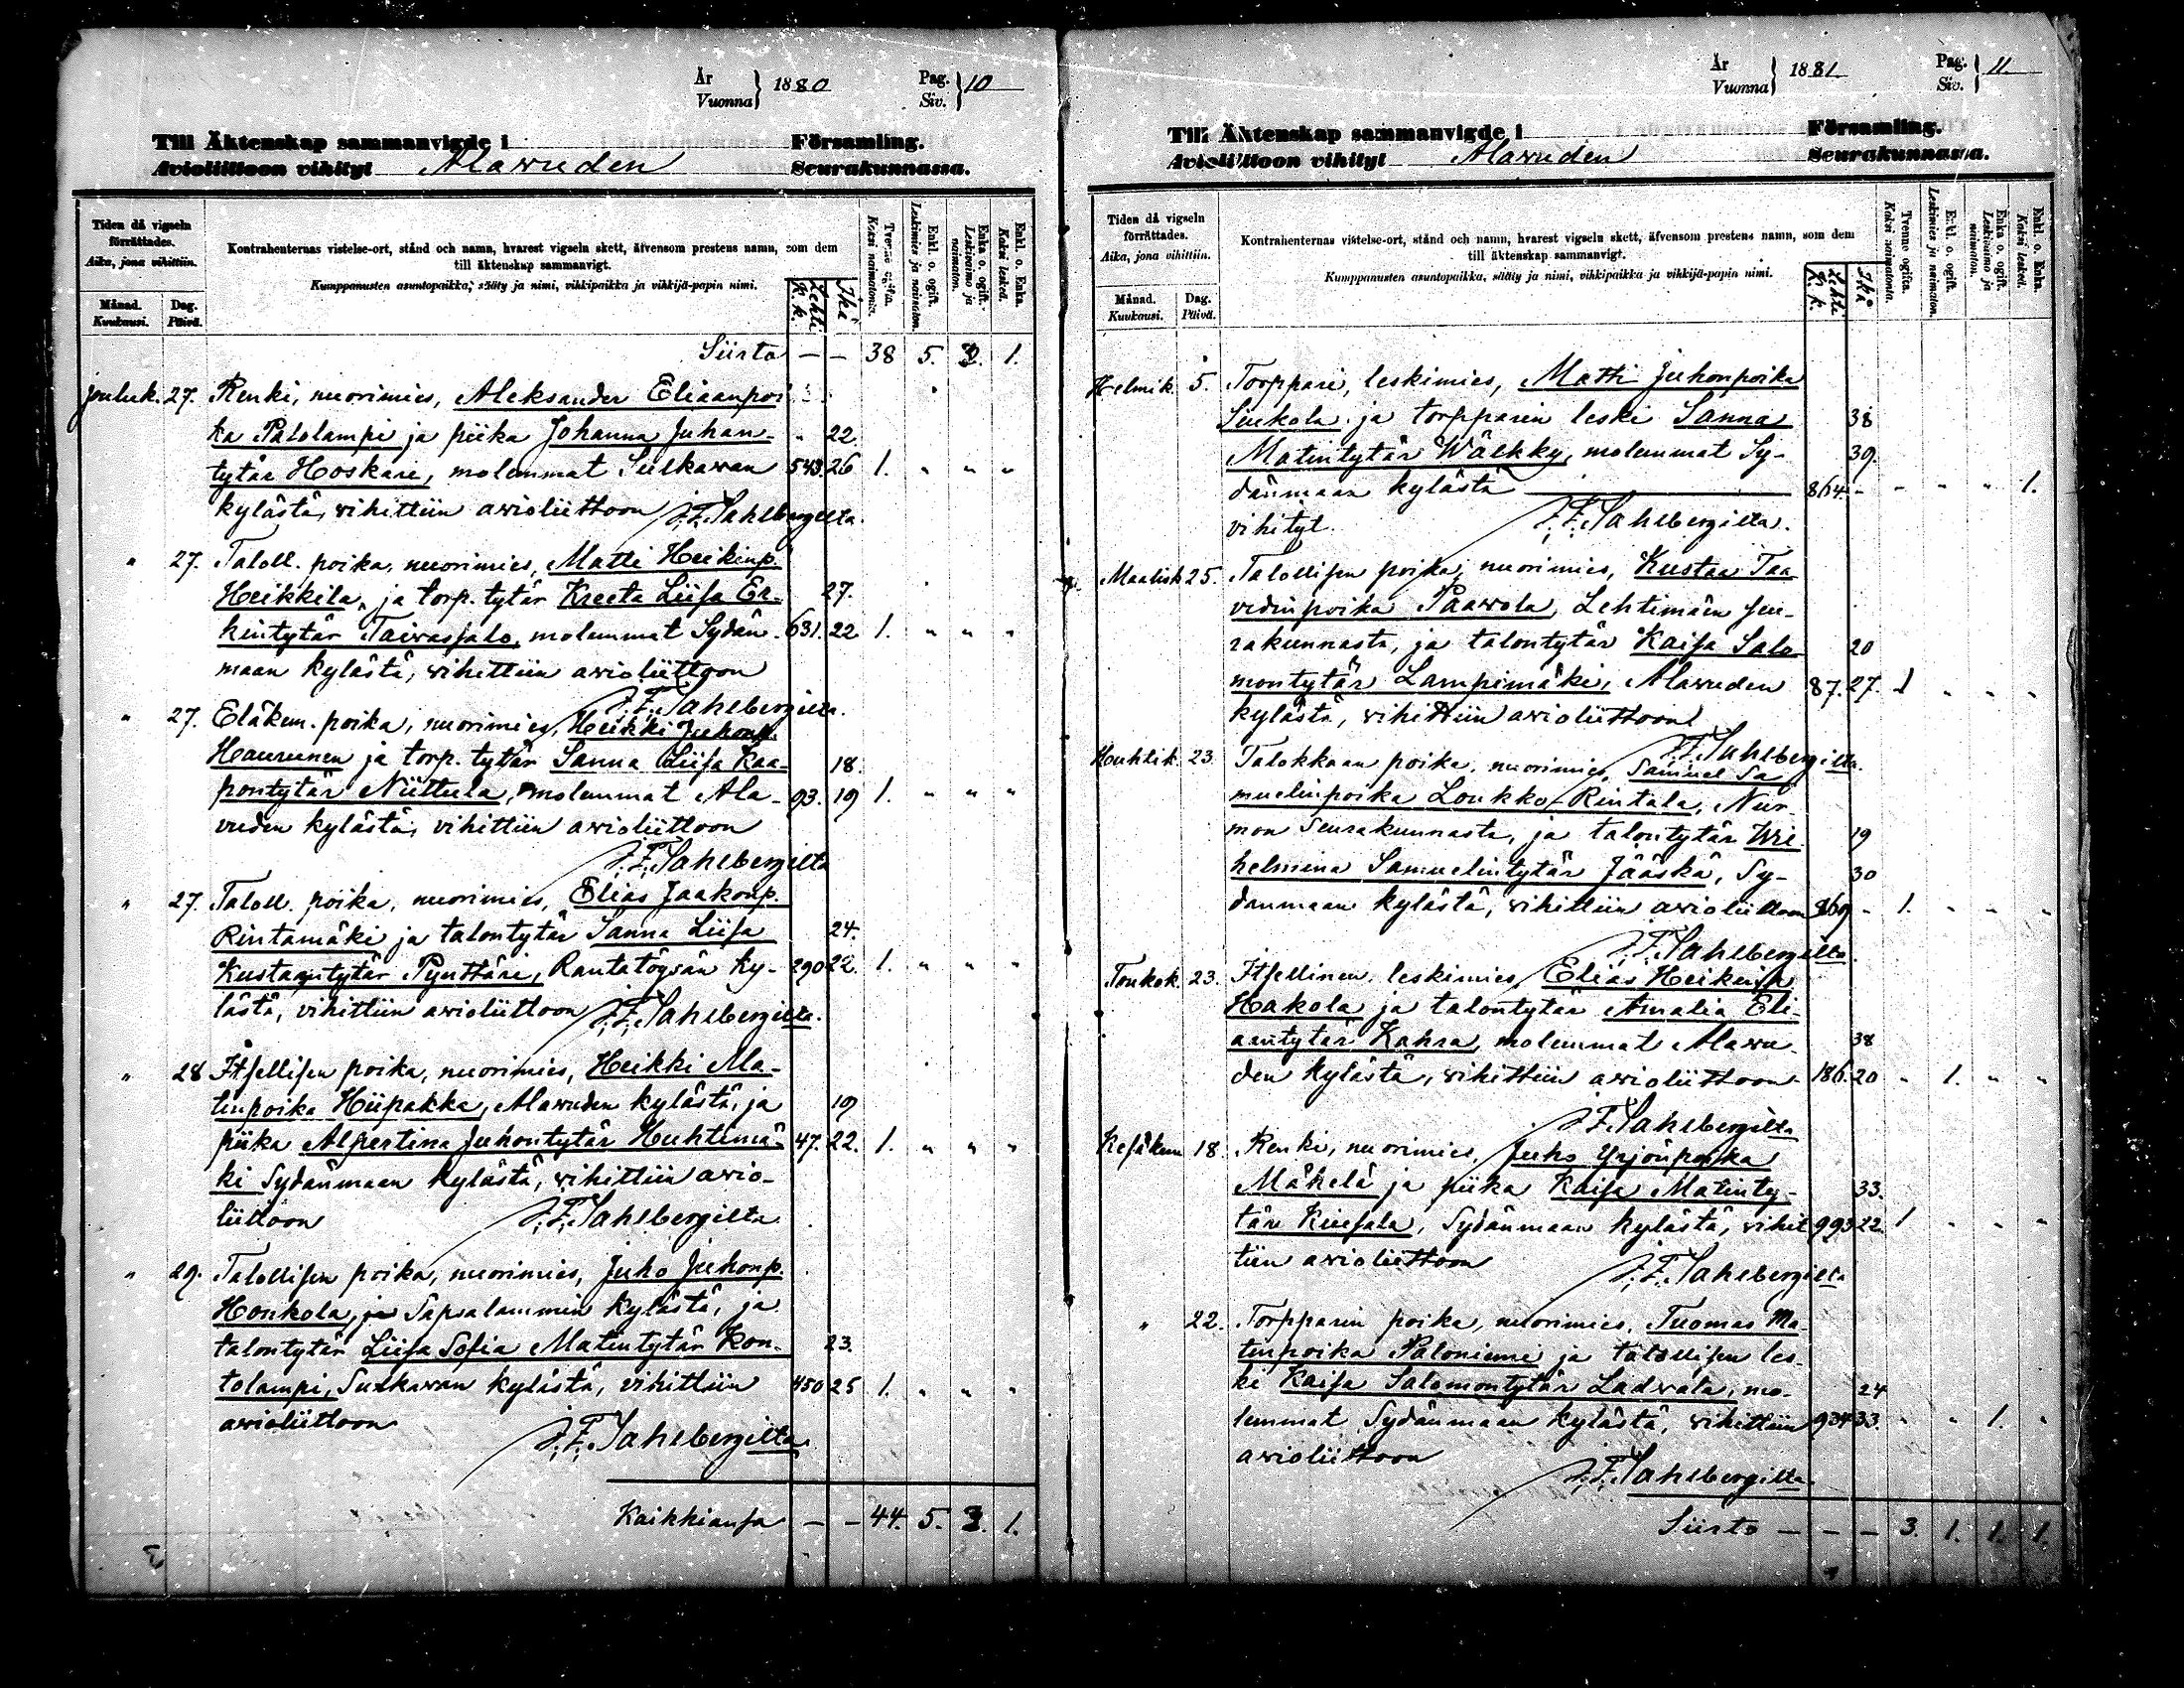 År
Vuonna } 1880
Pag.
Siv. } 10
Till Äktenskap sammanvigde i Församling.
Avioliittoon vihityt Alavuden Seurakunnassa.
Tiden då vigseln förrättades.
Aika, jona vihittiin.
Månad. Kuukausi.
Dag. Päivä.
Kontrahenternas vistelse-ort, stånd och namn, hvarest vigseln skett, äfvensom prestens namn, som dem
till äktenskap sammanvigt.
Kumppanusten asuntopaikka, sääty ja nimi, vihkipaikka ja vihkijä-papin nimi.
Lehti K. k.
Ikä
Tvenne ogifta. Kaksi naimatonta.
Enkl. o. ogift. Leskimies ja naimaton.
Enka o. ogift. Leskivaimo ja naimaton.
Enkl. o. Enka. Kaksi leskeä.
Siirto — — 38 5. 1.
Jouluk. 27. Renki, nuorimies, Aleksander Eliaanpoi
ka Palolampi ja piika Johanna Juhan- " 22.
tytär Hoskari, molemmat Sulkavan 543. 26 1. " " "
kylästä, vihittiin avioliittoon J. F. Sahlbergilta.
" 27. Taloll. poika, nuorimies, Matti Heikinp.
Heikkilä, ja torp. tytär Kreeta Liisa Er- 27.
kintytär Taivassalo, molemmat Sydän- 631. 22 1. " " "
maan kylästä, vihittiin avioliittoon
J. F. Sahlbergilta.
" 27. Eläkem. poika, nuorimies, Heikki Juhonp.
Haurunen ja torp. tytär Sanna Liisa Kaa- 18.
pontytär Niittula, molemmat Ala- 93. 19 1. " " "
vuden kylästä, vihittiin avioliittoon
J. F. Sahlbergilta
" 27. Taloll. poika, nuorimies, Elias Jaakonp.
Rintamäki ja talontytär Sanna Liisa 24.
Kustaantytär Pynttäri, Rantatöysän ky- 290 22. 1. " " "
lästä, vihittiin avioliittoon J. F. Sahlbergilta.
" 28 Itsellisen poika, nuorimies, Heikki Ma-
tinpoika Hiipakka, Alavuden kylästä, ja 19
piika Alpertina Juhontytär Huhtimä- 47. 22. 1. " " "
ki Sydänmaan kylästä, vihittiin avio-
liittoon J. F. Sahlbergilta
" 29. Talollisen poika, nuorimies, Juho Juhonp.
Honkola, ja Sapsalammin kylästä, ja
talontytär Liisa Sofia Matintytär Kon- 23.
tolampi, Sulkavan kylästä, vihittiin 450 25 1. " " "
avioliittoon
J. F. Sahlbergilta
Kaikkiansa — — 44. 5. 1.
År
Vuonna } 1881
Pag.
Siv. } 11.
Till Äktenskap sammanvigde i Församling.
Avioliittoon vihityt Alavuden Seurakunnassa.
Tiden då vigseln förrättades.
Aika, jona vihittiin.
Månad. Kuukausi.
Dag. Päivä.
Kontrahenternas vistelse-ort, stånd och namn, hvarest vigseln skett, äfvensom prestens namn, som dem
till äktenskap sammanvigt.
Kumppanusten asuntopaikka, sääty ja nimi, vihkipaikka ja vihkijä-papin nimi.
Lehti K. k.
Ikä
Tvenne ogifta. Kaksi naimatonta.
Enkl. o. ogift. Leskimies ja naimaton.
Enka o. ogift. Leskivaimo ja naimaton.
Enkl. o. Enka. Kaksi leskeä.
Helmik. 5. Torppari, leskimies, Matti Juhonpoika
Siukola ja torpparin leski Sanna 38
Matintytär Wälkky, molemmat Sy- 39.
dänmaan kylästä 864. - - " " 1.
vihityt. J. F. Sahlbergilta.
Maalisk 25. Talollisen poika, nuorimies, Kustaa Taa
vedinpoika Paavola, Lehtimäen seu-
rakunnasta, ja talontytär Kaisa Salo 20
montytär Lampimäki, Alavuden 87. 27. 1 " " "
kylästä, vihittiin avioliittoon
J. F. Sahlbergilta.
Huhtik. 23. Talokkaan poika, nuorimies, Samuel Sa
muelinpoika Loukko-Rintala, Nur
mon Seurakunnasta, ja talontytär Wil 19
helmina Samuelintytär Jääskä, Sy- 30
dänmaan kylästä, vihittiin avioliittoon 869 - 1. " " "
J. F. Sahlbergilta.
Toukok. 23. Itsellinen, leskimies, Elias Heikinp.
Hakola ja talontytär Amalia Eli-
aantytär Kahra, molemmat Alavu- 38
den kylästä, vihittiin avioliittoon 186. 20 " 1. " "
J. F. Sahlbergilta
Kesäkuu 18. Renki, nuorimies, Juho Yrjönpoika
Mäkelä ja piika Kaisa Matinty- 33.
tär Kiisala, Sydänmaan kylästä, vihit 993 22. 1 " " "
tiin avioliittoon
J. F. Sahlbergilta
" 22. Torpparin poika, nuorimies, Tuomas Ma
tinpoika Paloniemi ja talollisen les-
ki Kaisa Salomontytär Ladvala, mo- 24
lemmat Sydänmaan kylästä, vihittiin 934 33. " " 1. "
avioliittoon
J. F. Sahlbergilta
Siirto — — — 3. 1. 1. 1.